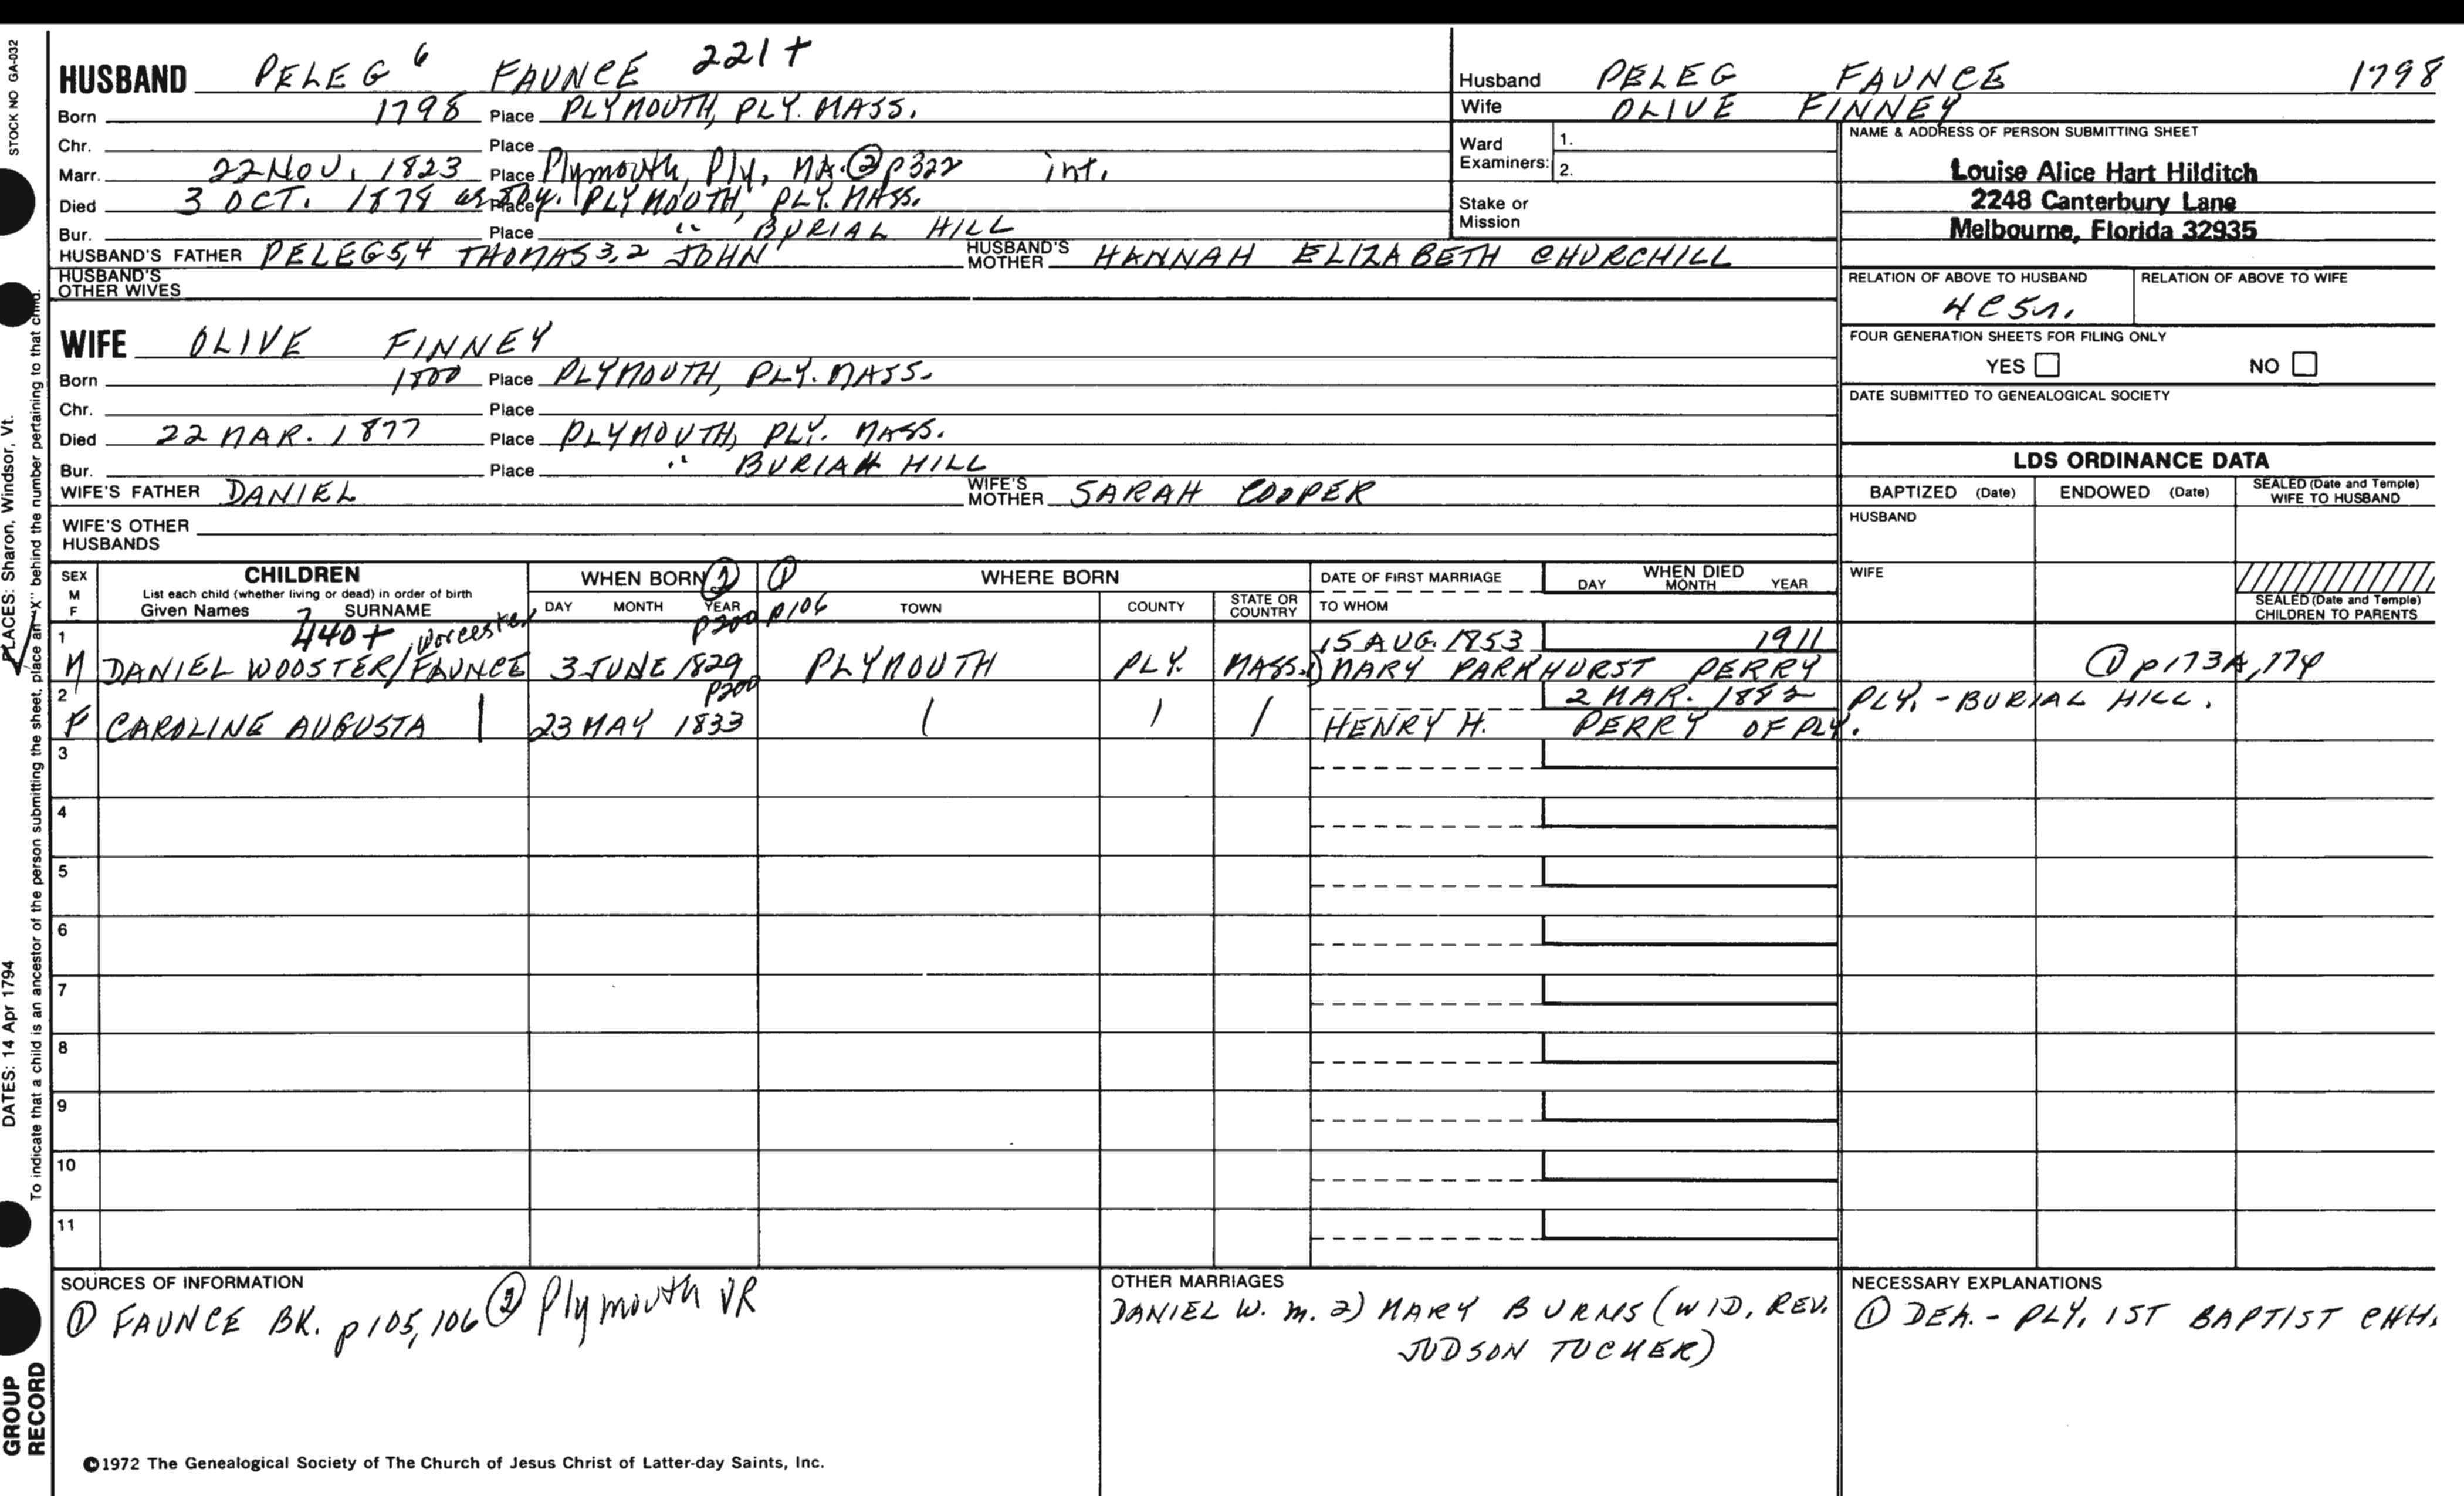 STOCK NO GA-032
HUSBAND PELEG 6 FAUNCE 221+
Born 1798 Place PLYMOUTH, PLY. MASS.
Chr. Place
Marr. 22 NOV. 1823 Place Plymouth, Ply, MA. ② p322 int.
Died 3 OCT. 1878 Place PLYMOUTH, PLY. MASS.
Bur. Place " BURIAL HILL
HUSBAND'S FATHER PELEG 5,4 THOMAS 3,2 JOHN' HUSBAND'S MOTHER HANNAH ELIZABETH CHURCHILL
HUSBAND'S OTHER WIVES
WIFE OLIVE FINNEY
Born 1800 Place PLYMOUTH, PLY. MASS.
Chr. Place
Died 22 MAR. 1877 Place PLYMOUTH, PLY. MASS.
Bur. Place " BURIAH HILL
WIFE'S FATHER DANIEL WIFE'S MOTHER SARAH COOPER
WIFE'S OTHER HUSBANDS
Husband PELEG FAUNCE 1798
Wife OLIVE FINNEY
Ward Examiners: 1.
2.
Stake or Mission
NAME & ADDRESS OF PERSON SUBMITTING SHEET
Louise Alice Hart Hilditch
2248 Canterbury Lane
Melbourne, Florida 32935
RELATION OF ABOVE TO HUSBAND RELATION OF ABOVE TO WIFE
4C5r.
FOUR GENERATION SHEETS FOR FILING ONLY
YES NO
DATE SUBMITTED TO GENEALOGICAL SOCIETY
LDS ORDINANCE DATA
BAPTIZED (Date) ENDOWED (Date) SEALED (Date and Temple) WIFE TO HUSBAND
HUSBAND
WIFE
SEALED (Date and Temple) CHILDREN TO PARENTS
SEX M F CHILDREN WHEN BORN ② ① WHERE BORN DATE OF FIRST MARRIAGE WHEN DIED
List each child (whether living or dead) in order of birth
Given Names SURNAME DAY MONTH YEAR p106 TOWN COUNTY STATE OR COUNTRY TO WHOM DAY MONTH YEAR
1 7 440+ Worcester p200 15 AUG. 1853 1911
M DANIEL WOOSTER/FAUNCE 3 JUNE 1829 PLYMOUTH PLY. MASS. 1) MARY PARKHURST PERRY ① p173A,174
2 p200 2 MAR. 1882 PLY. - BURIAL HILL.
F CAROLINE AUGUSTA | 23 MAY 1833 ( ) / HENRY H. PERRY OF PLY.
3
4
5
6
7
8
9
10
11
SOURCES OF INFORMATION
① FAUNCE BK. p105,106 ② Plymouth VR
OTHER MARRIAGES
DANIEL W. m. 2) MARY BURNS (WID. REV.
JUDSON TUCKER)
NECESSARY EXPLANATIONS
① DEA. - PLY. 1ST BAPTIST CHH.
©1972 The Genealogical Society of The Church of Jesus Christ of Latter-day Saints, Inc.
PLACES: Sharon, Windsor, Vt.
DATES: 14 Apr 1794
To indicate that a child is an ancestor of the person submitting the sheet, place an "X" behind the number pertaining to that child.
GROUP RECORD